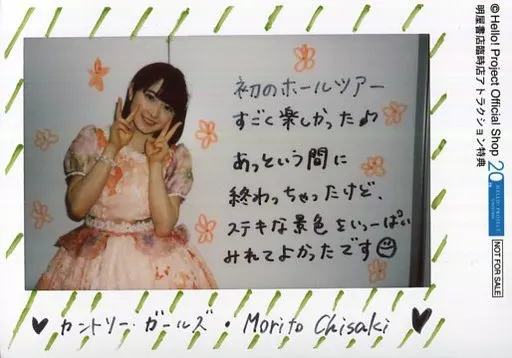 初のホールツアー
すごく楽しかった♪
あっという間に
終わっちゃったけど、
ステキな景色をいっーぱい
みれてよかったです☺
♥ カントリー・ガールズ・Morito Chisaki ♥
© Hello! Project Official Shop
明屋書店臨時店アトラクション特典
20th
HELLO! PROJECT
NOT FOR SALE